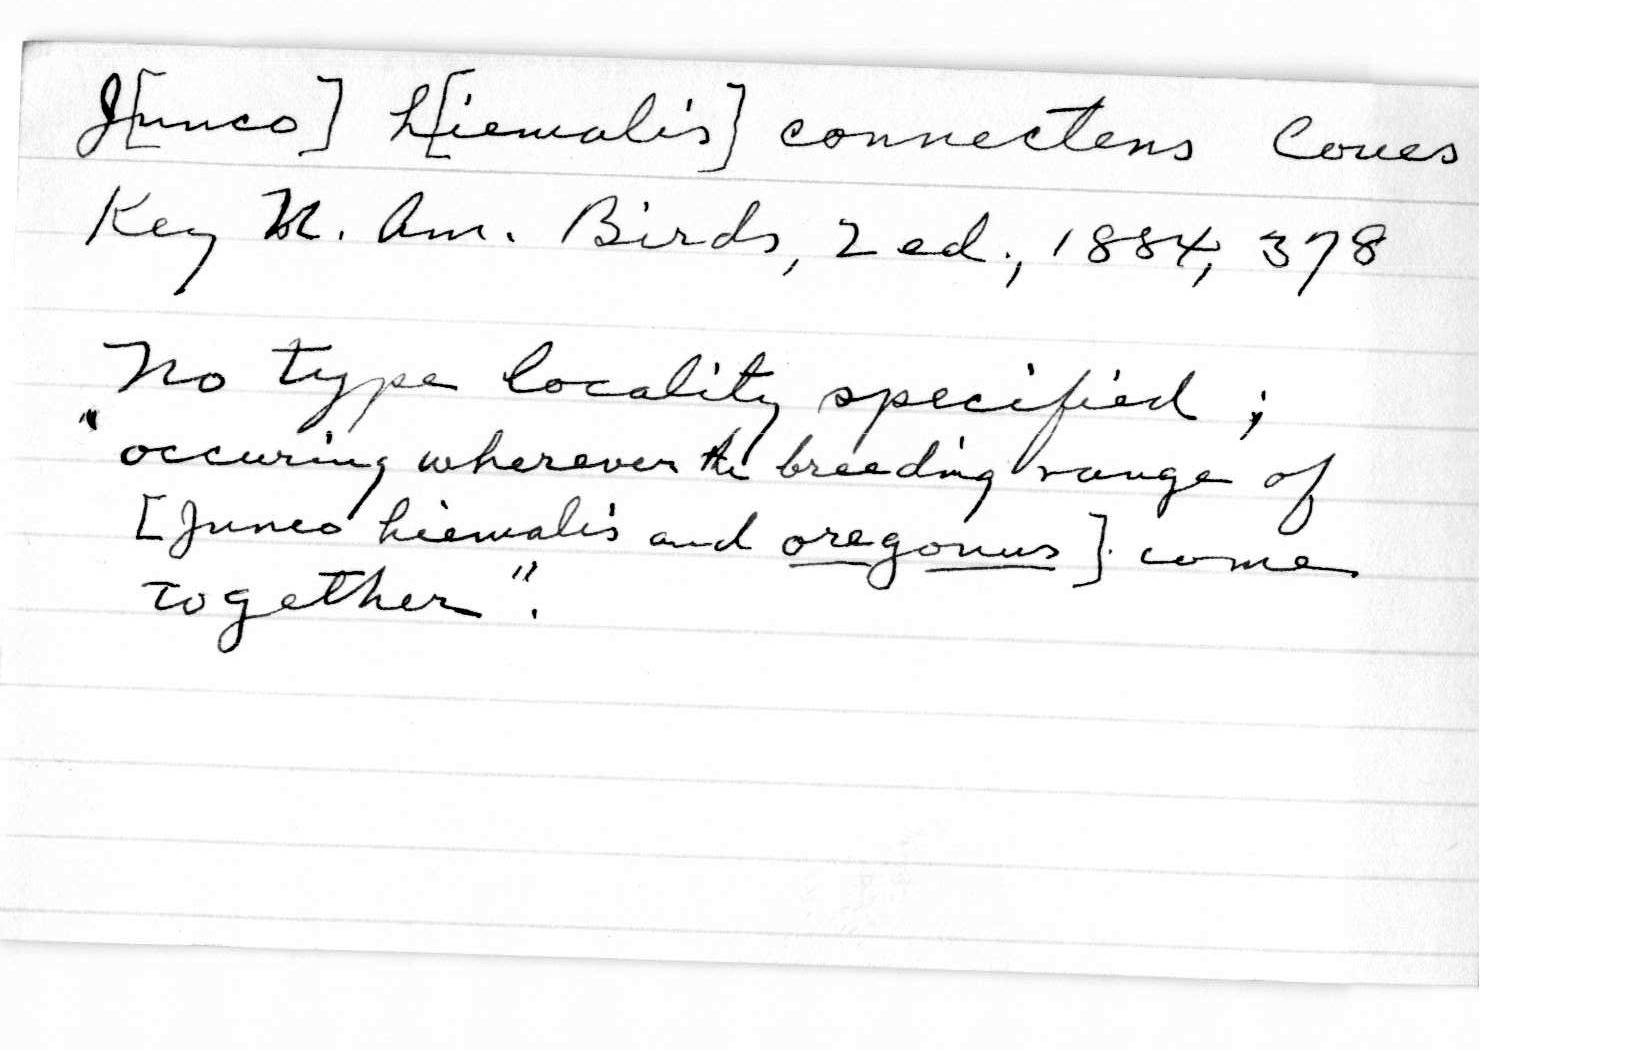 J[unco] h[iemalis] connectens Coues
Key N. Am. Birds, 2 ed., 1884, 378
No type locality specified;
"occuring wherever the breeding range of
[Junco hiemalis and oregonus] come
together".